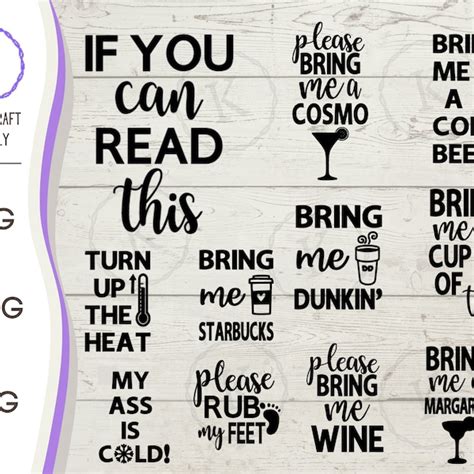 RAFT
LY
G
G
G
IF YOU
can
READ
this
please
BRING
me a
COSMO
BRIN
ME
A
CO
BEE
BRING
me
DUNKIN'
DD
BRING
me
CUP
OF
t
TURN
UP
THE
HEAT
BRING
me
STARBUCKS
MY
ASS
IS
COLD!
please
RUB
my FEET
please
BRING
me
WINE
BRING
me
MARGAR